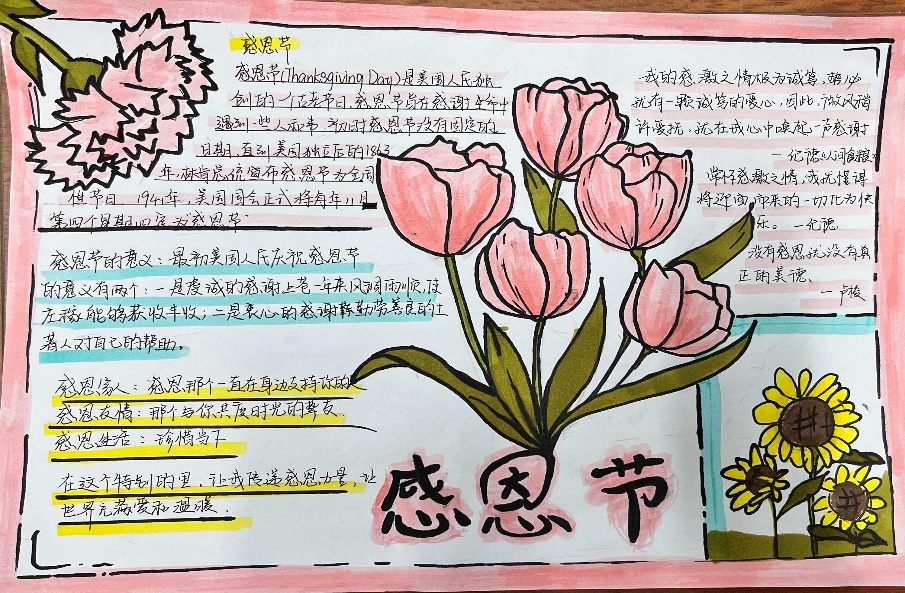 感恩节
感恩节(Thanksgiving Day)是美国人民独
创的一个古老节日,感恩节旨在感谢生命中
遇到一些人和事,初时感恩节没有固定的
日期,直到美国独立后的1863
年,林肯总统宣布感恩节为全国
性节日 1941年,美国国会正式将每年11月
第四个星期四定为感恩节
感恩节的意义:最初美国人民庆祝感恩节
的意义有两个:一是虔诚的感谢上苍一年来风调雨顺,使
庄稼能够获收丰收;二是衷心的感谢勤劳善良的土
著人对自己的帮助。
感恩家人:感恩那个一直在身边支持你的人
感恩友情:那个与你共度时光的挚友
感恩生活:珍惜当下
在这个特别的里,让我传递感恩力量,让
世界充满爱和温暖.
我的感激之情极为诚笃,
就有一颗诚笃的爱心,因此,微风稍
许要扰,就在我心中唤起一声感谢
—纪德《人间食粮》
常怀感激之情,我就懂得
将迎面而来的一切化为快
乐。—纪德
没有感恩就没有真
正的美德。
—卢梭
感恩节